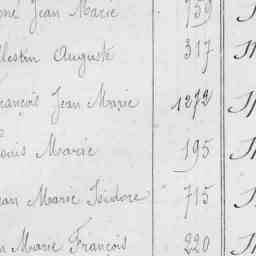 Jean Marie 739
Auguste 317
François Jean Marie 1272
Louis Marie 195
Jean Marie Isidore 715
Marie François 220